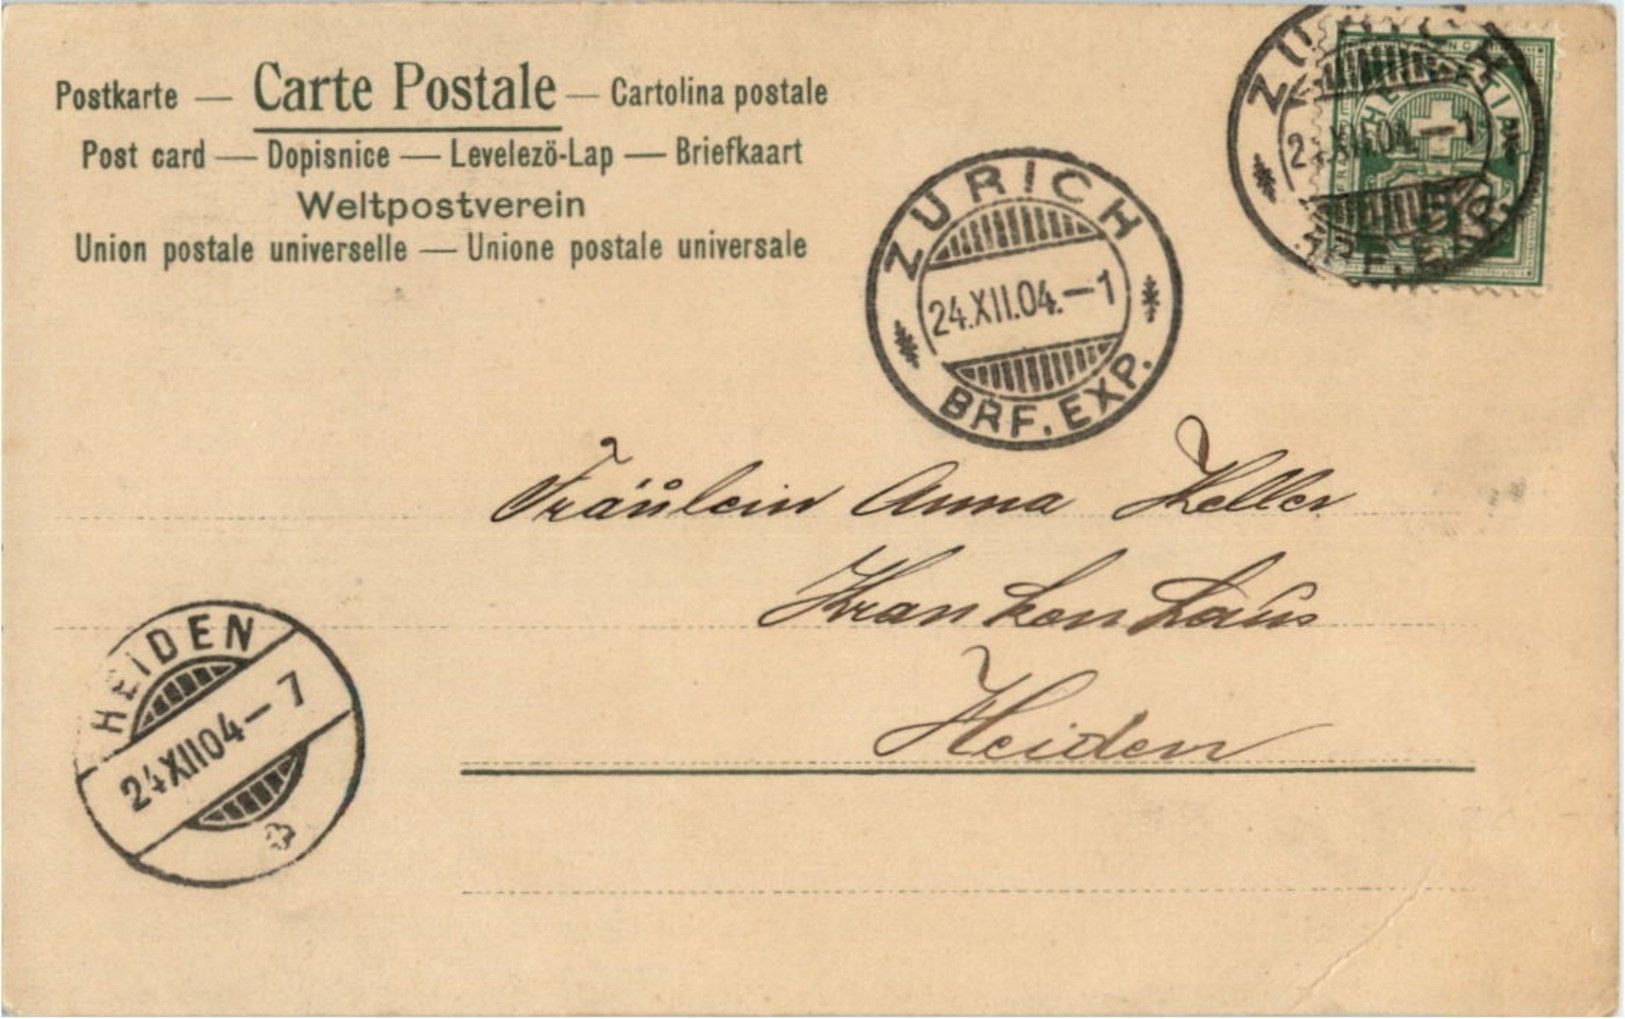 Postkarte — Carte Postale — Cartolina postale
Post card — Dopisnice — Levelezö-Lap — Briefkaart
Weltpostverein
Union postale universelle — Unione postale universale
ZÜRICH
24.XII.04.—1
BRF. EXP.
HELVETIA
ZÜRICH
24.XII.04.—1
BRF. EXP.
Fräulein Anna Keller
Krankenhaus
Heiden
HEIDEN
24.XII04—7